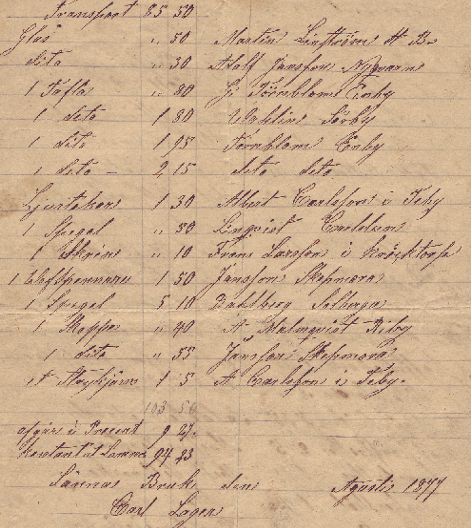 Transport 85 50
Glas " 50 Martin Lindström A B.
dito " 30 Adolf Jansson Nyqvarn
1 Tafla " 80 G Törnblom Enby
1 dito 1 80 Wahlin Törby
1 dito 1 95 Törnblom Enby
1 dito - 2 15 dito dito
Ljustakar 1 30 Albert Carlsson i Teby
1 Spegel " 50 Linqvist
1 Skrin " 10 Frans Larsson i
1 1 50 Jansson Stopmora
1 Spegel 5 10 Dahlberg Salberga
1 Skoppa " 40 A Malmqvist Reby
1 dito " 55 Jansson Stopmora
et 1 5 A Carlsson i Teby.
103 50
afgår i Procent 9 27.
Kontant Summa 94 23
Särnas Bruk den Agusti 1877
Carl Lager